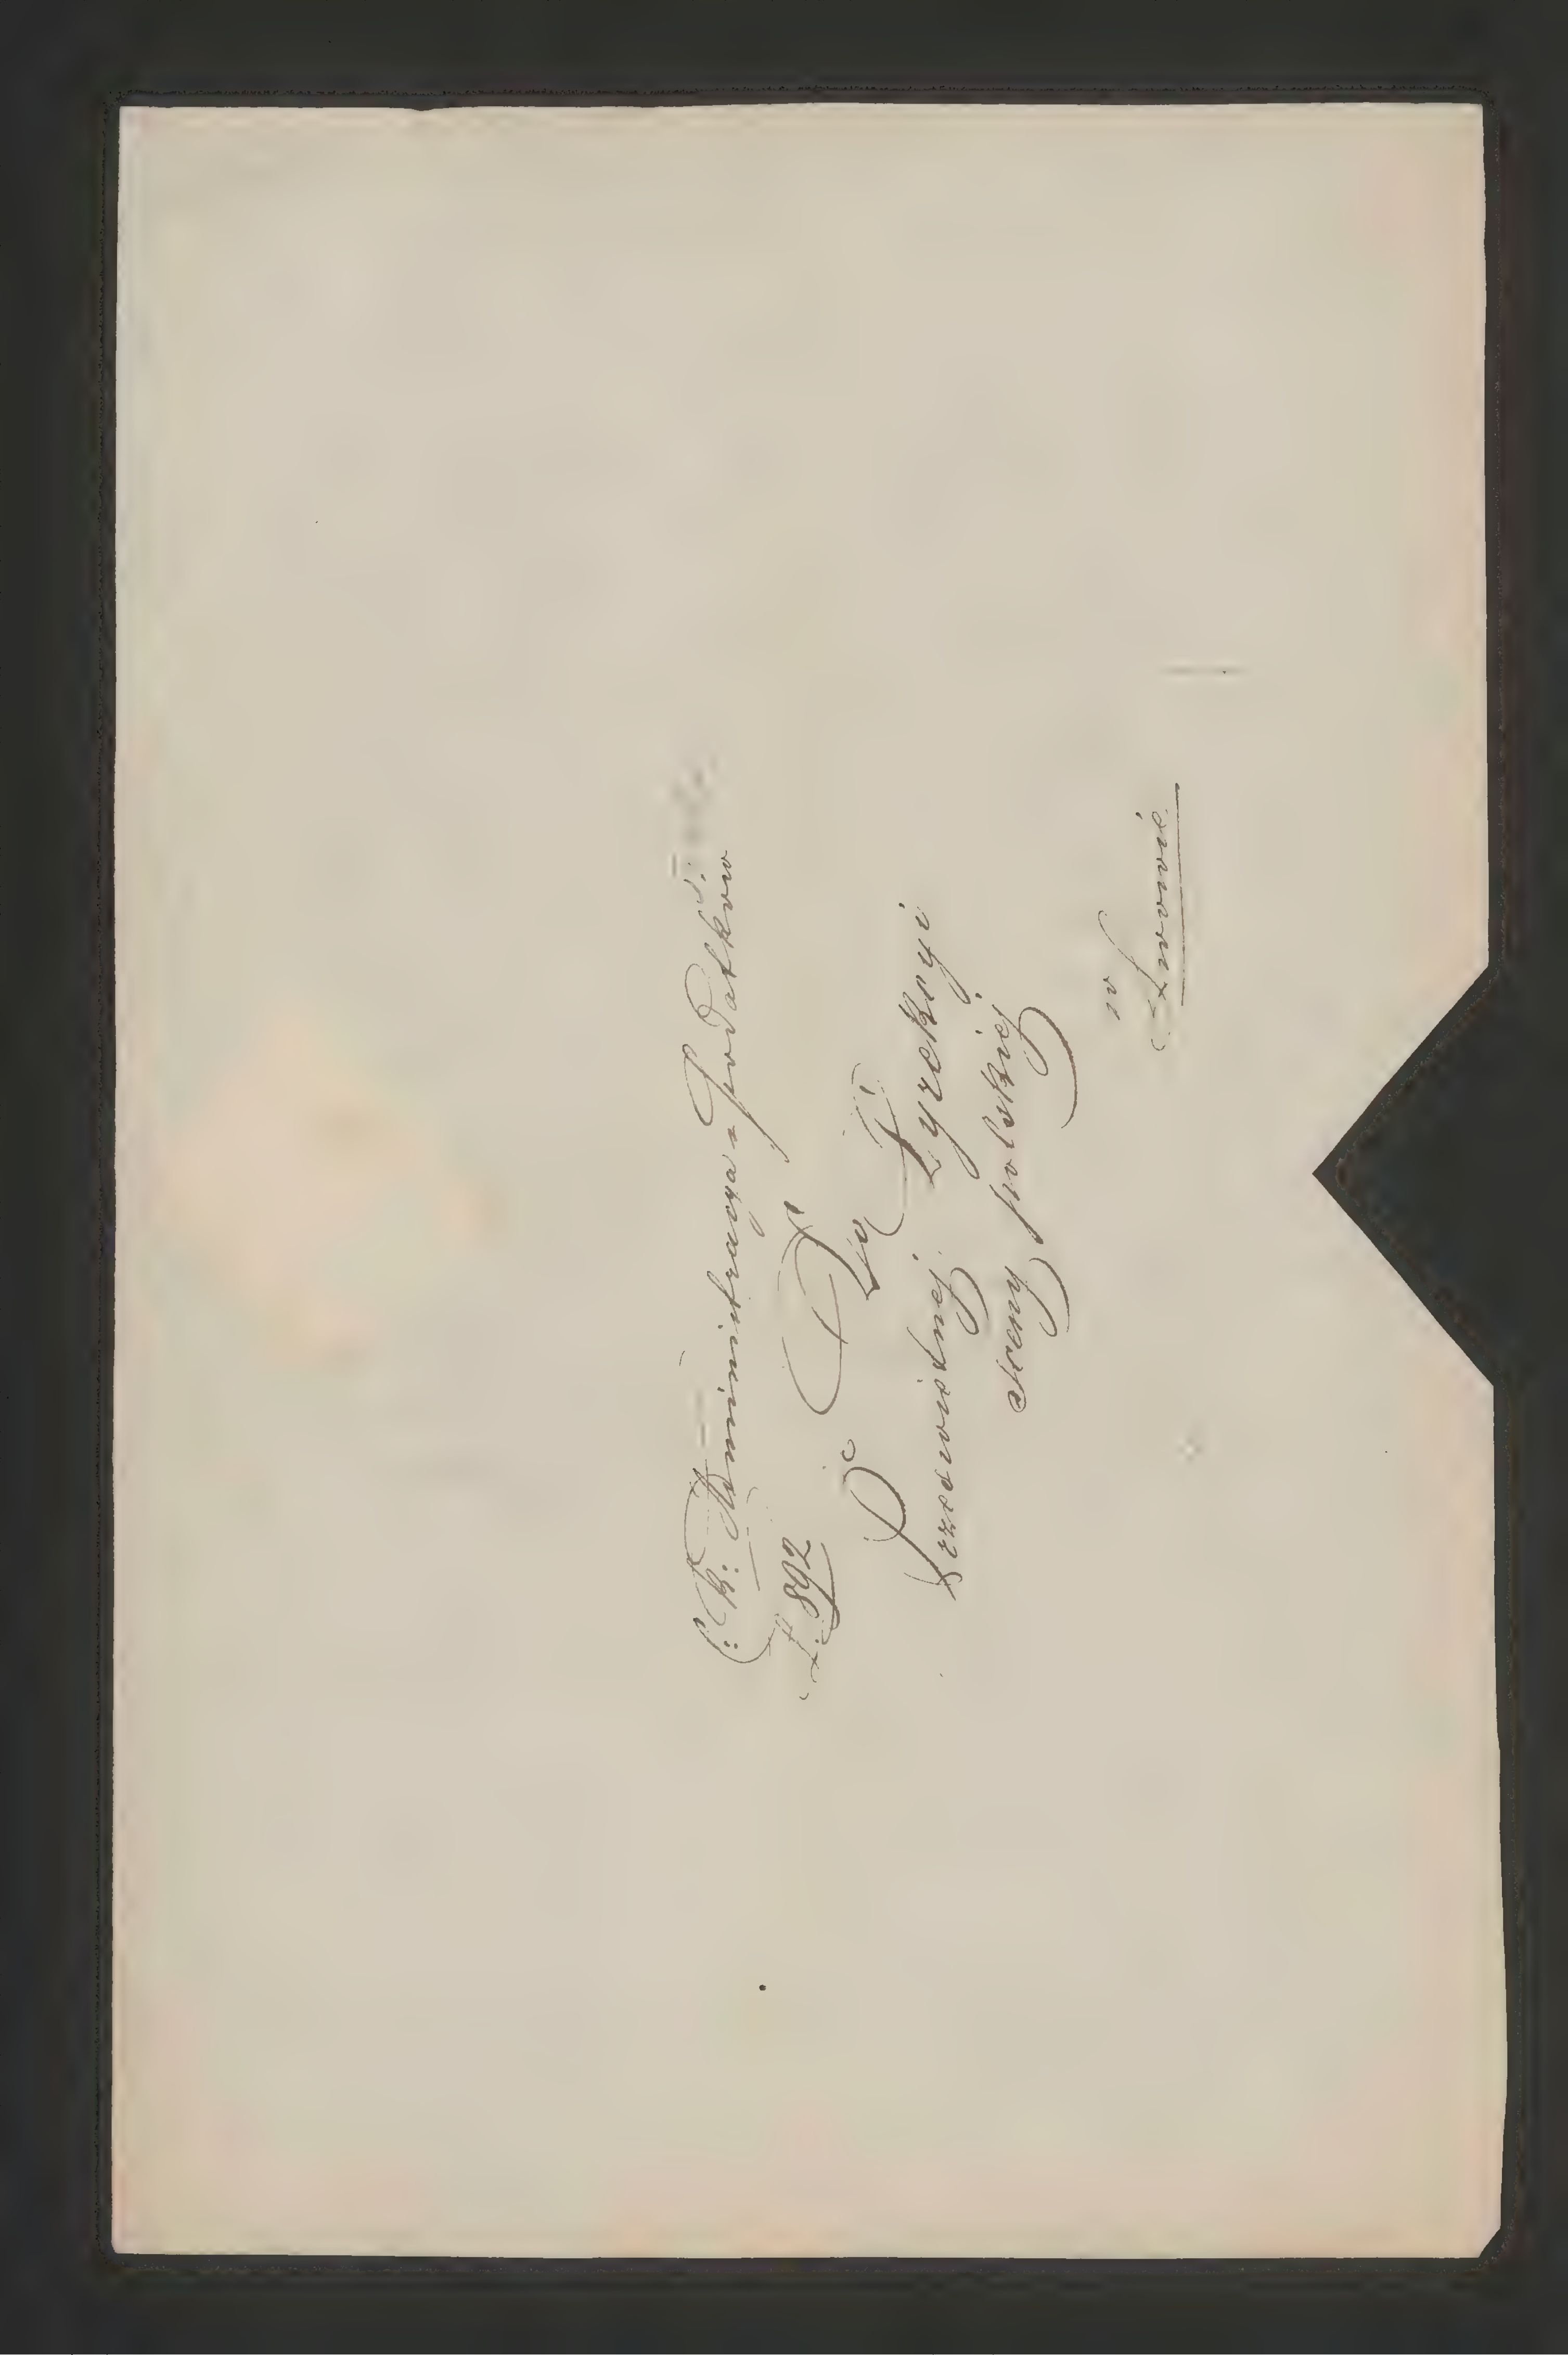 C: K: Administracya Podatków
L: 892
Do
Prześwietnej Dyrekcyi
sceny polskiej
w
Lwowie.